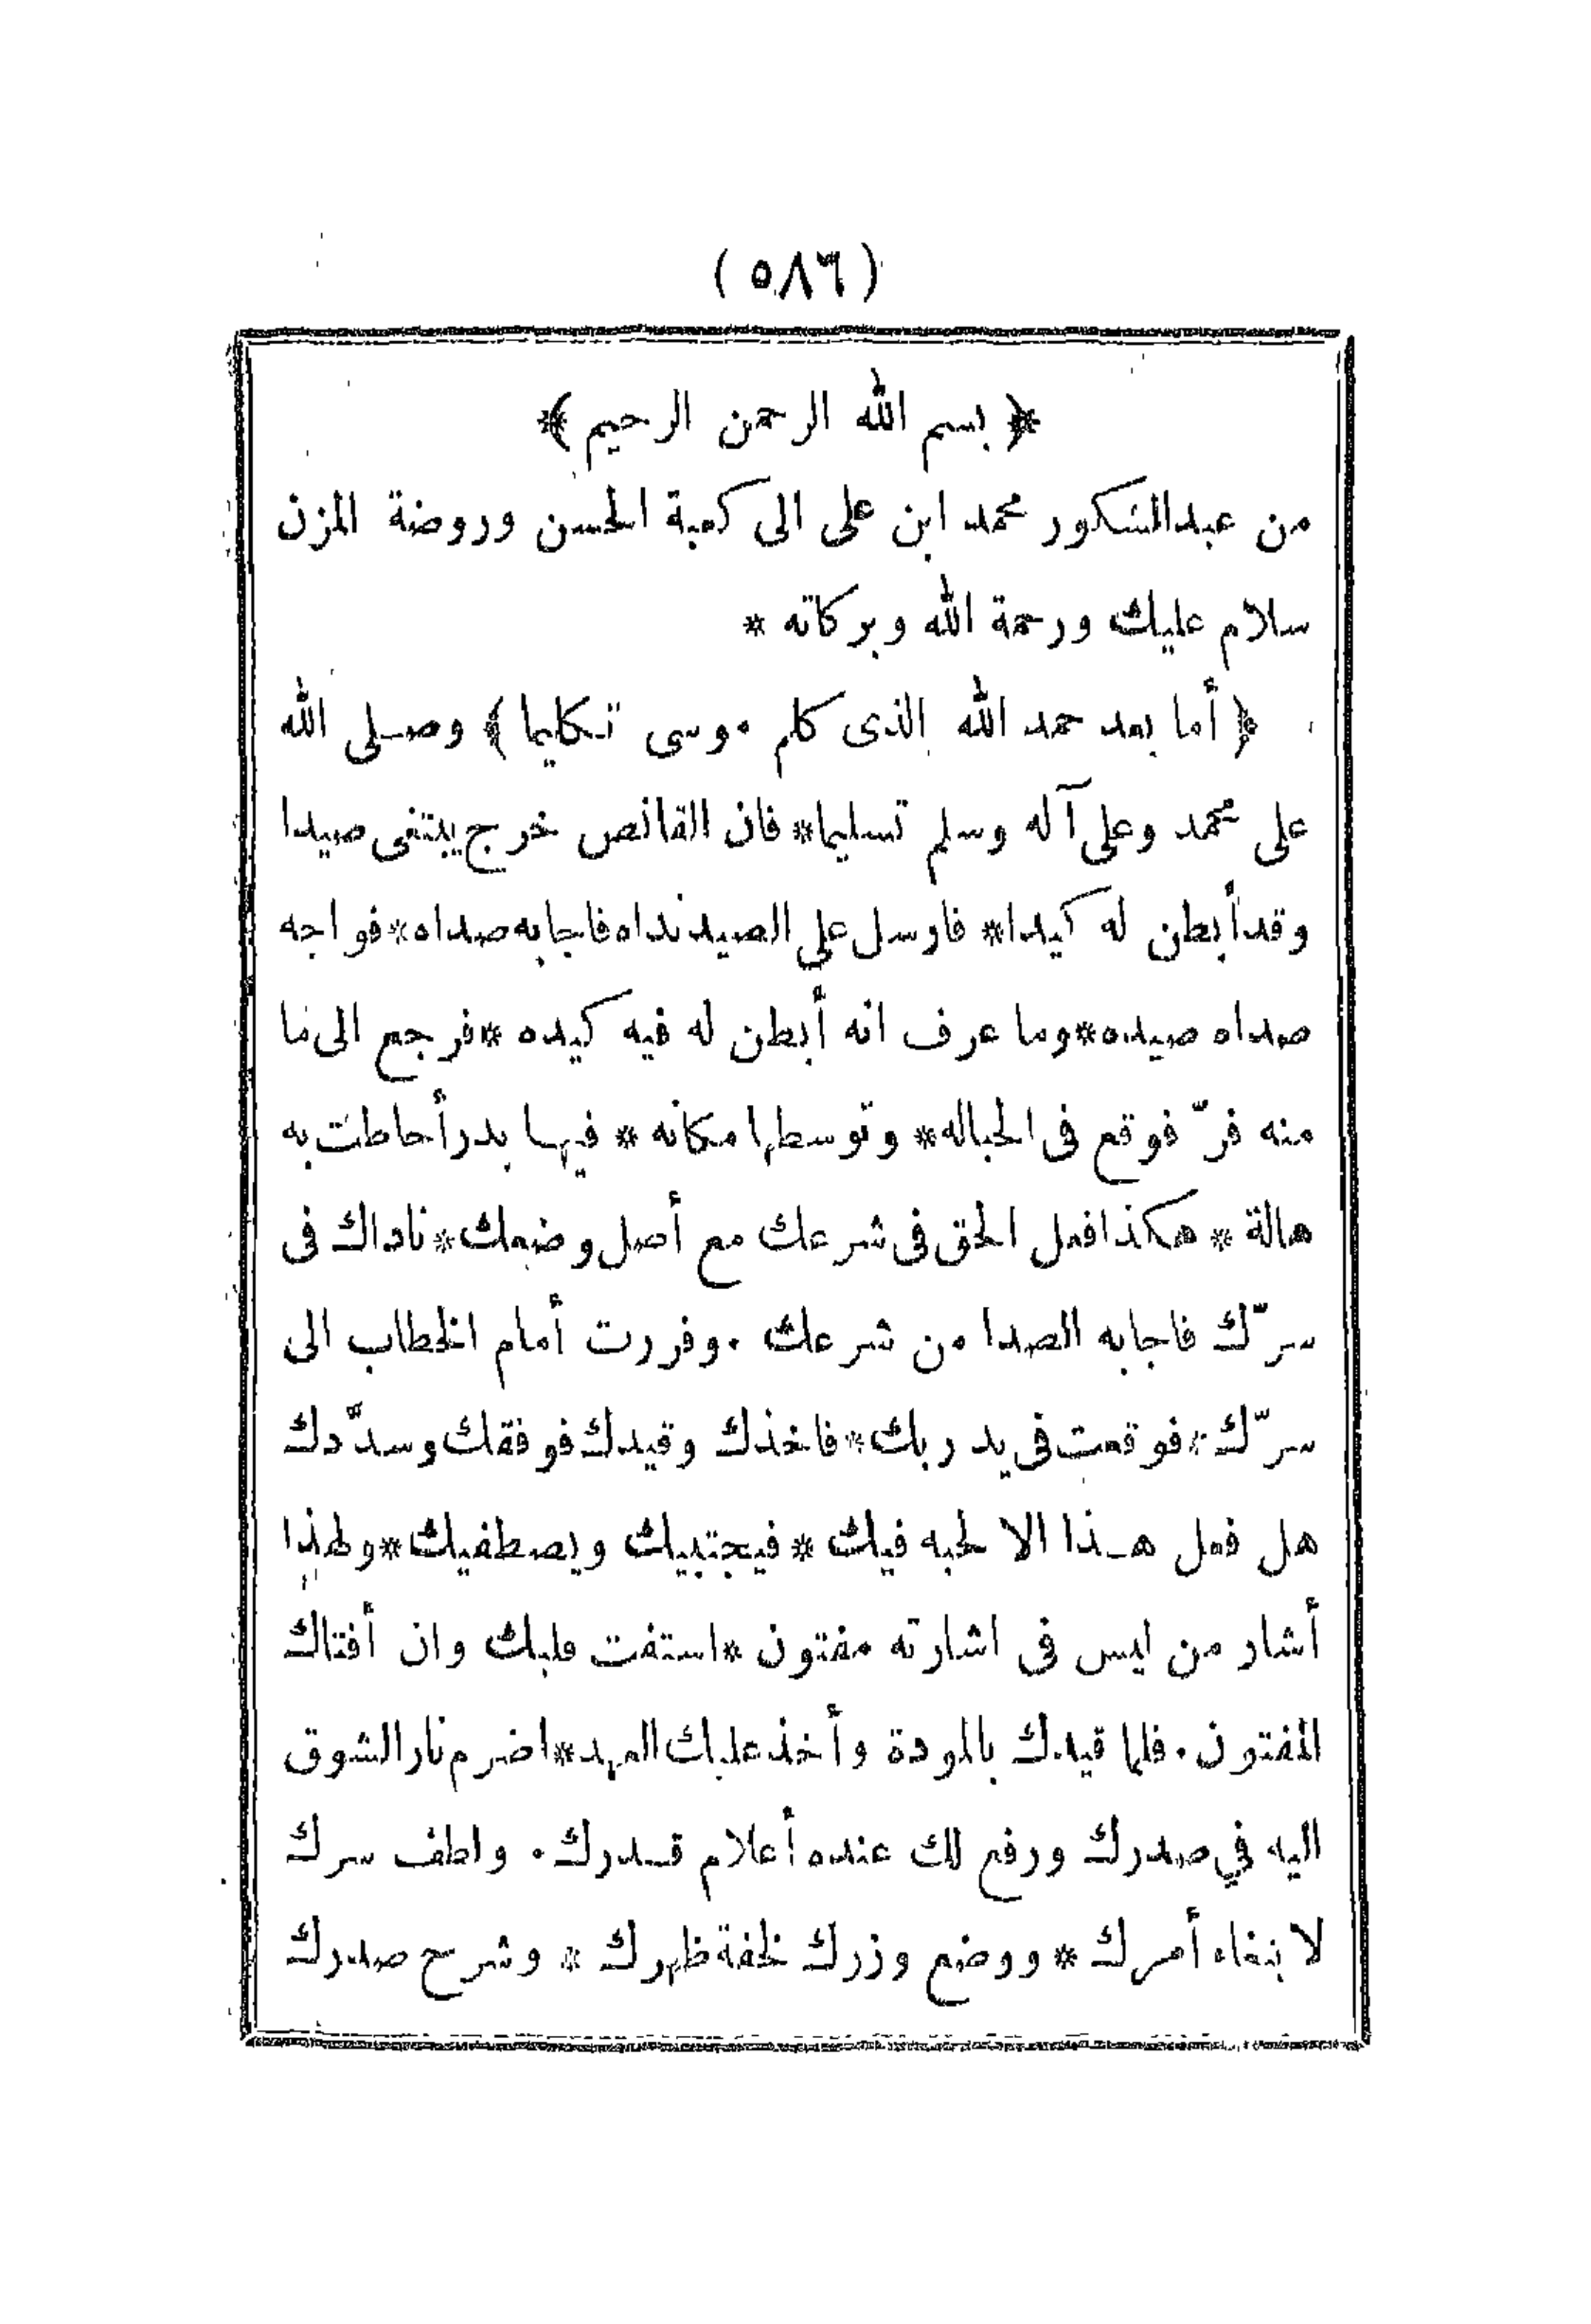 (٥٨٦)
* ﴿ بسم الله الرحمن الرحيم ﴾ *
من عبدالشكور محمد ابن على الى كعبة الحسن وروضة المزن
سلام عليك ورحمة الله وبركاته *
﴿ أما بعد حمد الله الذى كلم موسى تكليما ﴾ وصلى الله
على محمد وعلى آله وسلم تسليما* فان القانص خرج يبتغى صيدا
وقد أبطن له كيدا* فارسل على الصيد نداه فاجابه صداه*فواجه
صداه صيده*وما عرف انه أبطن له فيه كيده *فرجع الى ما
منه فرّ فوقع فى الحباله* وتوسطها مكانه * فيها بدر أحاطت به
هالة * هكذا فعل الحق فى شرعك مع أصل وضعك*ناداك فى
سرّك فاجابه الصدا من شرعك . وفررت أمام الخطاب الى
سرّك*فوقعت فى يد ربك*فاخذك وقيدك فوفقك وسدّدك
هل فعل هذا الا لحبه فيك *فيجتبيك ويصطفيك*ولهذا
أشار من ليس فى اشارته مفتون *استفت قلبك وان أفتاك
المفتون . فلما قيدك بالمودة وأخذ عليك العهد*اضرم نار الشوق
اليه في صدرك ورفع لك عنده أعلام قدرك . ولطف سرك
لابنغاء أمرك * ووضع وزرك لخفة ظهرك * وشرح صدرك